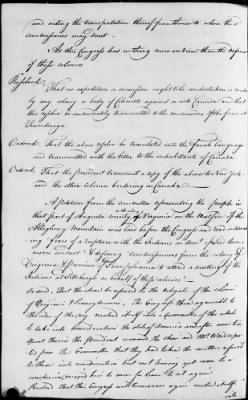 and aiding the transportation thereof from thence to where the
commissioners may direct.
As this Congress has nothing more in view than the defence
of these colonies
Resolved, That no expedition or incursion ought to be undertaken or made
by any colony or body of Colonists against or into Canada And that
this resolve be immediately transmitted to the commander of the forces at
Ticonderoga
Ordered, That the above resolve be translated into the French language
and transmitted with the letter to the inhabitants of Canada
Ordered, That the president transmit a copy of the above to New York
and the other colonies bordering on Canada
A petition from the committee representing the people in
that part of Augusta county in Virginia on the west side of the
Alleghany Mountain was laid before the Congress and read intimating
fears of a rupture with the Indians on acct of Lord Dun-
more's conduct & desiring commissioners from the colony of
Virginia & province of Pennsylvania to attend a meeting of the
Indians at Pittsburgh in behalf of these colonies
Ordered, That the above be referred to the delegates of the colonies
of Virginia & Pennsylvania. The Congress then agreeable to
the order of the day resolved itself into a committee of the whole
to take into consideration the state of America and after some time
spent therein the president resumed the chair and Mr. Ward repor-
ted from the Committee that they had taken the matters referred
to them into consideration but not having yet come to a
conclusion desired him to move for leave to sit again
Resolved That this Congress will tomorrow again resolve itself
into